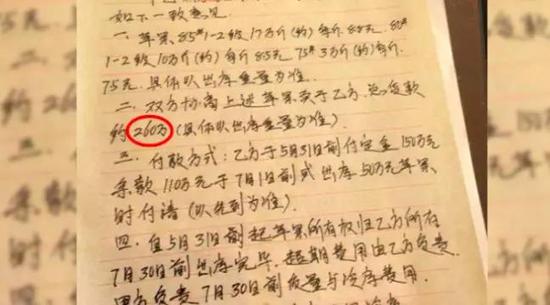 如下一致意见
一、苹果、85#1-2级17万斤(约)每斤8.8元. 80#
1-2级10万斤(约)每斤8.5元, 75#3万斤(约)每斤.
7.5元.具体以出库重量为准.
二、双方协商上述苹果卖于乙方,总货款
约260万(具体以出库重量为准)
三、付款方式:乙方于5月31日前付定金150万
余款110万元于7月1日前或出库50万元苹果
时付清(以先到为准).
四、自5月31日前起苹果所有权归乙方所有
7月30日前出库完毕.超期费用由乙方负责.
甲方负责7月30日前质量与冷库费用.